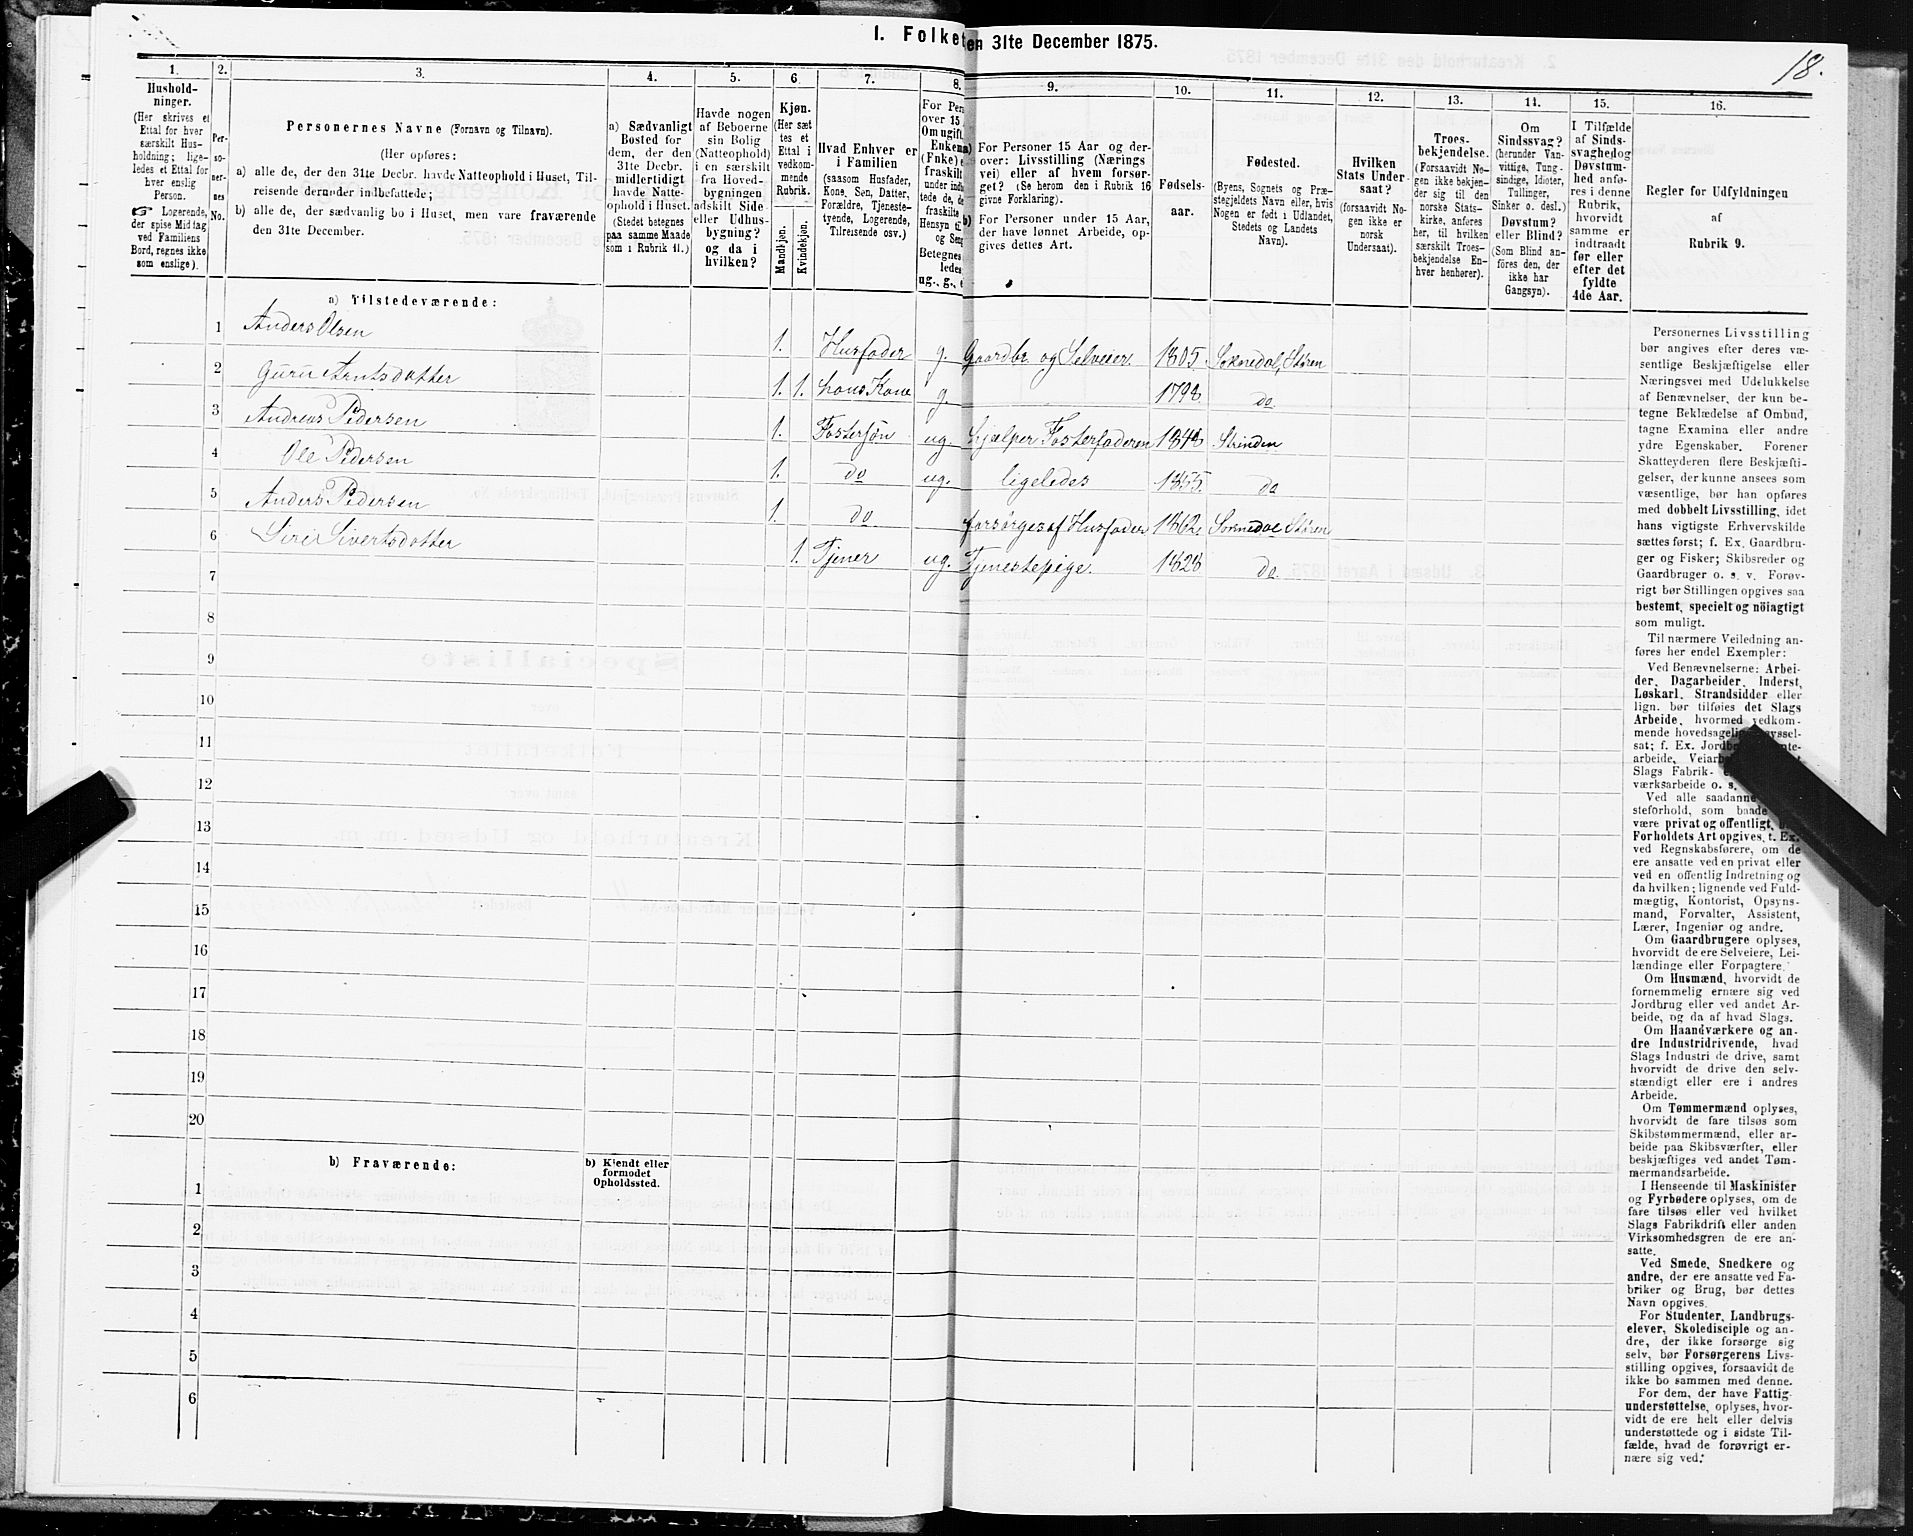 I. Folket en 31te December 1875.
18.
1.
Hushold-
ninger.
(Her skrives et
Ettal for hver
særskilt Hus-
holdning; lige-
ledes et Ettal for
hver enslig
Person.
☞ Logerende,
der spise Middag
ved Familiens
Bord, regnes ikke
som enslige).
2.
Per-
so-
ner-
nes
No.
3.
Personernes Navne (Fornavn og Tilnavn).
(Her opføres:
a) alle de, der den 31te Decbr. havde Natteophold i Huset, Til-
reisende derunder indbefattede;
b) alle de, der sædvanlig bo i Huset, men vare fraværende
den 31te December.
4.
a) Sædvanligt
Bosted for
dem, der den
31te Decbr.
midlertidigt
havde Natte-
ophold i Huset.
(Stedet betegnes
paa samme Maade
som i Rubrik 11.)
5.
Havde nogen
af Beboerne
sin Bolig
(Natteophold)
i en særskilt
fra Hoved-
bygningen
adskilt Side-
eller Udhus-
bygning?
og da i
hvilken?
6.
Kjøn.
(Her sæt-
tes et
Ettal i
vedkom-
mende
Rubrik.
Mandkjøn.
Kvindekjøn.
7.
Hvad Enhver er
i Familien
(saasom Husfader,
Kone, Søn, Datter,
Forældre, Tjeneste-
tyende, Logerende,
Tilreisende osv.)
8.
For Per
over 15
Om ugift,
Enkem
(Fnke) e
fraskilt
under indb
tede de, d
fraskilte
Hensyn til
og Seng
Betegnes
ledes
ug., g., e
9.
a) For Personer 15 Aar og der-
over: Livsstilling (Nærings
vei) eller af hvem forsør-
get? (Se herom den i Rubrik 16
givne Forklaring).
b) For Personer under 15 Aar,
der have lønnet Arbeide, op-
gives dettes Art.
10.
Fødsels-
aar.
11.
Fødested.
(Byens, Sognets og Præ-
stegjeldets Navn eller, hvis
Nogen er født i Udlandet,
Stedets og Landets
Navn).
12.
Hvilken
Stats Under-
saat?
(forsaavidt No-
gen ikke er
norsk
Undersaat).
13.
Troes-
bekjendelse.
(Forsaavidt No-
gen ikke bekjen-
der sig til den
norske Stats-
kirke, anføres
her, til hvilken
særskilt Troes-
bekjendelse En-
hver henhører).
14.
Om
Sindssvag?
(herunder Van-
vittige, Tung-
sindige, Idioter,
Tullinger,
Sinker o. desl.)
Døvstum?
eller Blind?
(Som Blind an-
føres den, der
ikke har
Gangsyn).
15.
I Tilfælde
af Sinds-
svaghed og
Døvstum-
hed anfø-
res i denne
Rubrik,
hvorvidt
samme er
indtraadt
før eller
efter det
fyldte
4de Aar.
16.
Regler for Udfyldningen
af
Rubrik 9.
a) Tilstedeværende:
1 Anders Olsen 1. Husfader g. Gaardbr. og Selveier. 1805. Soknedal, Støren
2 Guru Arntsdotter 1. 1. hans Kone g. 1798 do.
3 Andreas Pedersen 1. Fostersøn ug. hjælper Fosterfaderen 1848 Strinden
4 Ole Pedersen 1. do ug. ligeledes 1855. do
5 Anders Pedersen 1. do. forsørges af Husfader 1862. Soknedal Støren
6 Siri Sivertsdotter 1. Tjener ug. Tjenestepige. 1828 do.
7
8
9
10
11
12
13
14
15
16
17
18
19
20
b) Fraværende:
b) Kjendt eller
formodet
Opholdssted.
1
2
3
4
5
6
Personernes Livsstilling
bør angives efter deres væ-
sentlige Beskjæftigelse eller
Næringsvei med Udelukkelse
af Benævnelser, der kun be-
tegne Beklædelse af Ombud,
tagne Examina eller andre
ydre Egenskaber. Forener
Skatteyderen flere Beskjæfti-
gelser, der kunne ansees som
væsentlige, bør han opføres
med dobbelt Livsstilling, idet
hans vigtigste Erhvervskilde
sættes først; f. Ex. Gaardbru-
ger og Fisker; Skibsreder og
Gaardbruger o. s. v. Forøv-
rigt bør Stillingen opgives saa
bestemt, specielt og nöiagtigt
som muligt.
Til nærmere Veiledning an-
føres her endel Exempler:
Ved Benævnelserne: Arbei-
der, Dagarbeider, Inderst,
Løskarl, Strandsidder eller
lign. bør tilføies det Slags
Arbeide, hvormed vedkom-
mende hovedsagelig sysselsat;
f. Ex. Jordbr mte-
arbeide, Veiarb
Slags Fabrik-
værksarbeide o. s.
Ved alle saadanne
steforhold, som baade
være privat og offentligt,
Forholdets Art opgives, t. Ex.
ved Regnskabsførere, om de
ere ansatte ved en privat eller
ved en offentlig Indretning og
da hvilken; lignende ved Fuld-
mægtig, Kontorist, Opsyns-
mand, Forvalter, Assistent,
Lærer, Ingeniør og andre.
Om Gaardbrugere oplyses,
hvorvidt de ere Selveiere, Lei-
lændinge eller Forpagtere.
Om Husmænd, hvorvidt de
fornemmelig ernære sig ved
Jordbrug eller ved andet Ar-
beide, og da af hvad Slags.
Om Haandværkere og an-
dre Industridrivende, hvad
Slags Industri de drive, samt
hvorvidt de drive den selv-
stændigt eller ere i andres
Arbeide.
Om Tømmermænd oplyses,
hvorvidt de fare tilsøs som
Skibstømmermænd, eller ar-
beide paa Skibsværfter, eller
beskjæftiges ved andet Tøm-
mermandsarbeide.
I Henseende til Maskinister
og Fyrbødere oplyses, om de
fare tilsøs eller ved hvilket
Slags Fabrikdrift eller anden
Virksomhedsgren de ere an-
satte.
Ved Smede, Snedkere og
andre, der ere ansatte ved Fa-
briker og Brug, bør dettes
Navn opgives.
For Studenter, Landbrugs-
elever, Skoledisciple og an-
dre, der ikke forsørge sig
selv, bør Forsørgerens Livs-
stilling opgives, forsaavidt de
ikke bo sammen med denne.
For dem, der have Fattig-
understøttelse, oplyses, hvor-
vidt de ere helt eller delvis
understøttede og i sidste Til-
fælde, hvad de forøvrigt er-
nære sig ved.